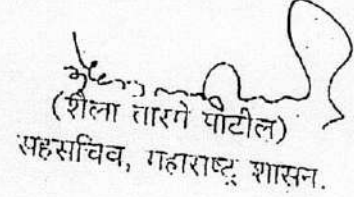 (शैला तारगे पाटील)
सहसचिव, महाराष्ट्र शासन.